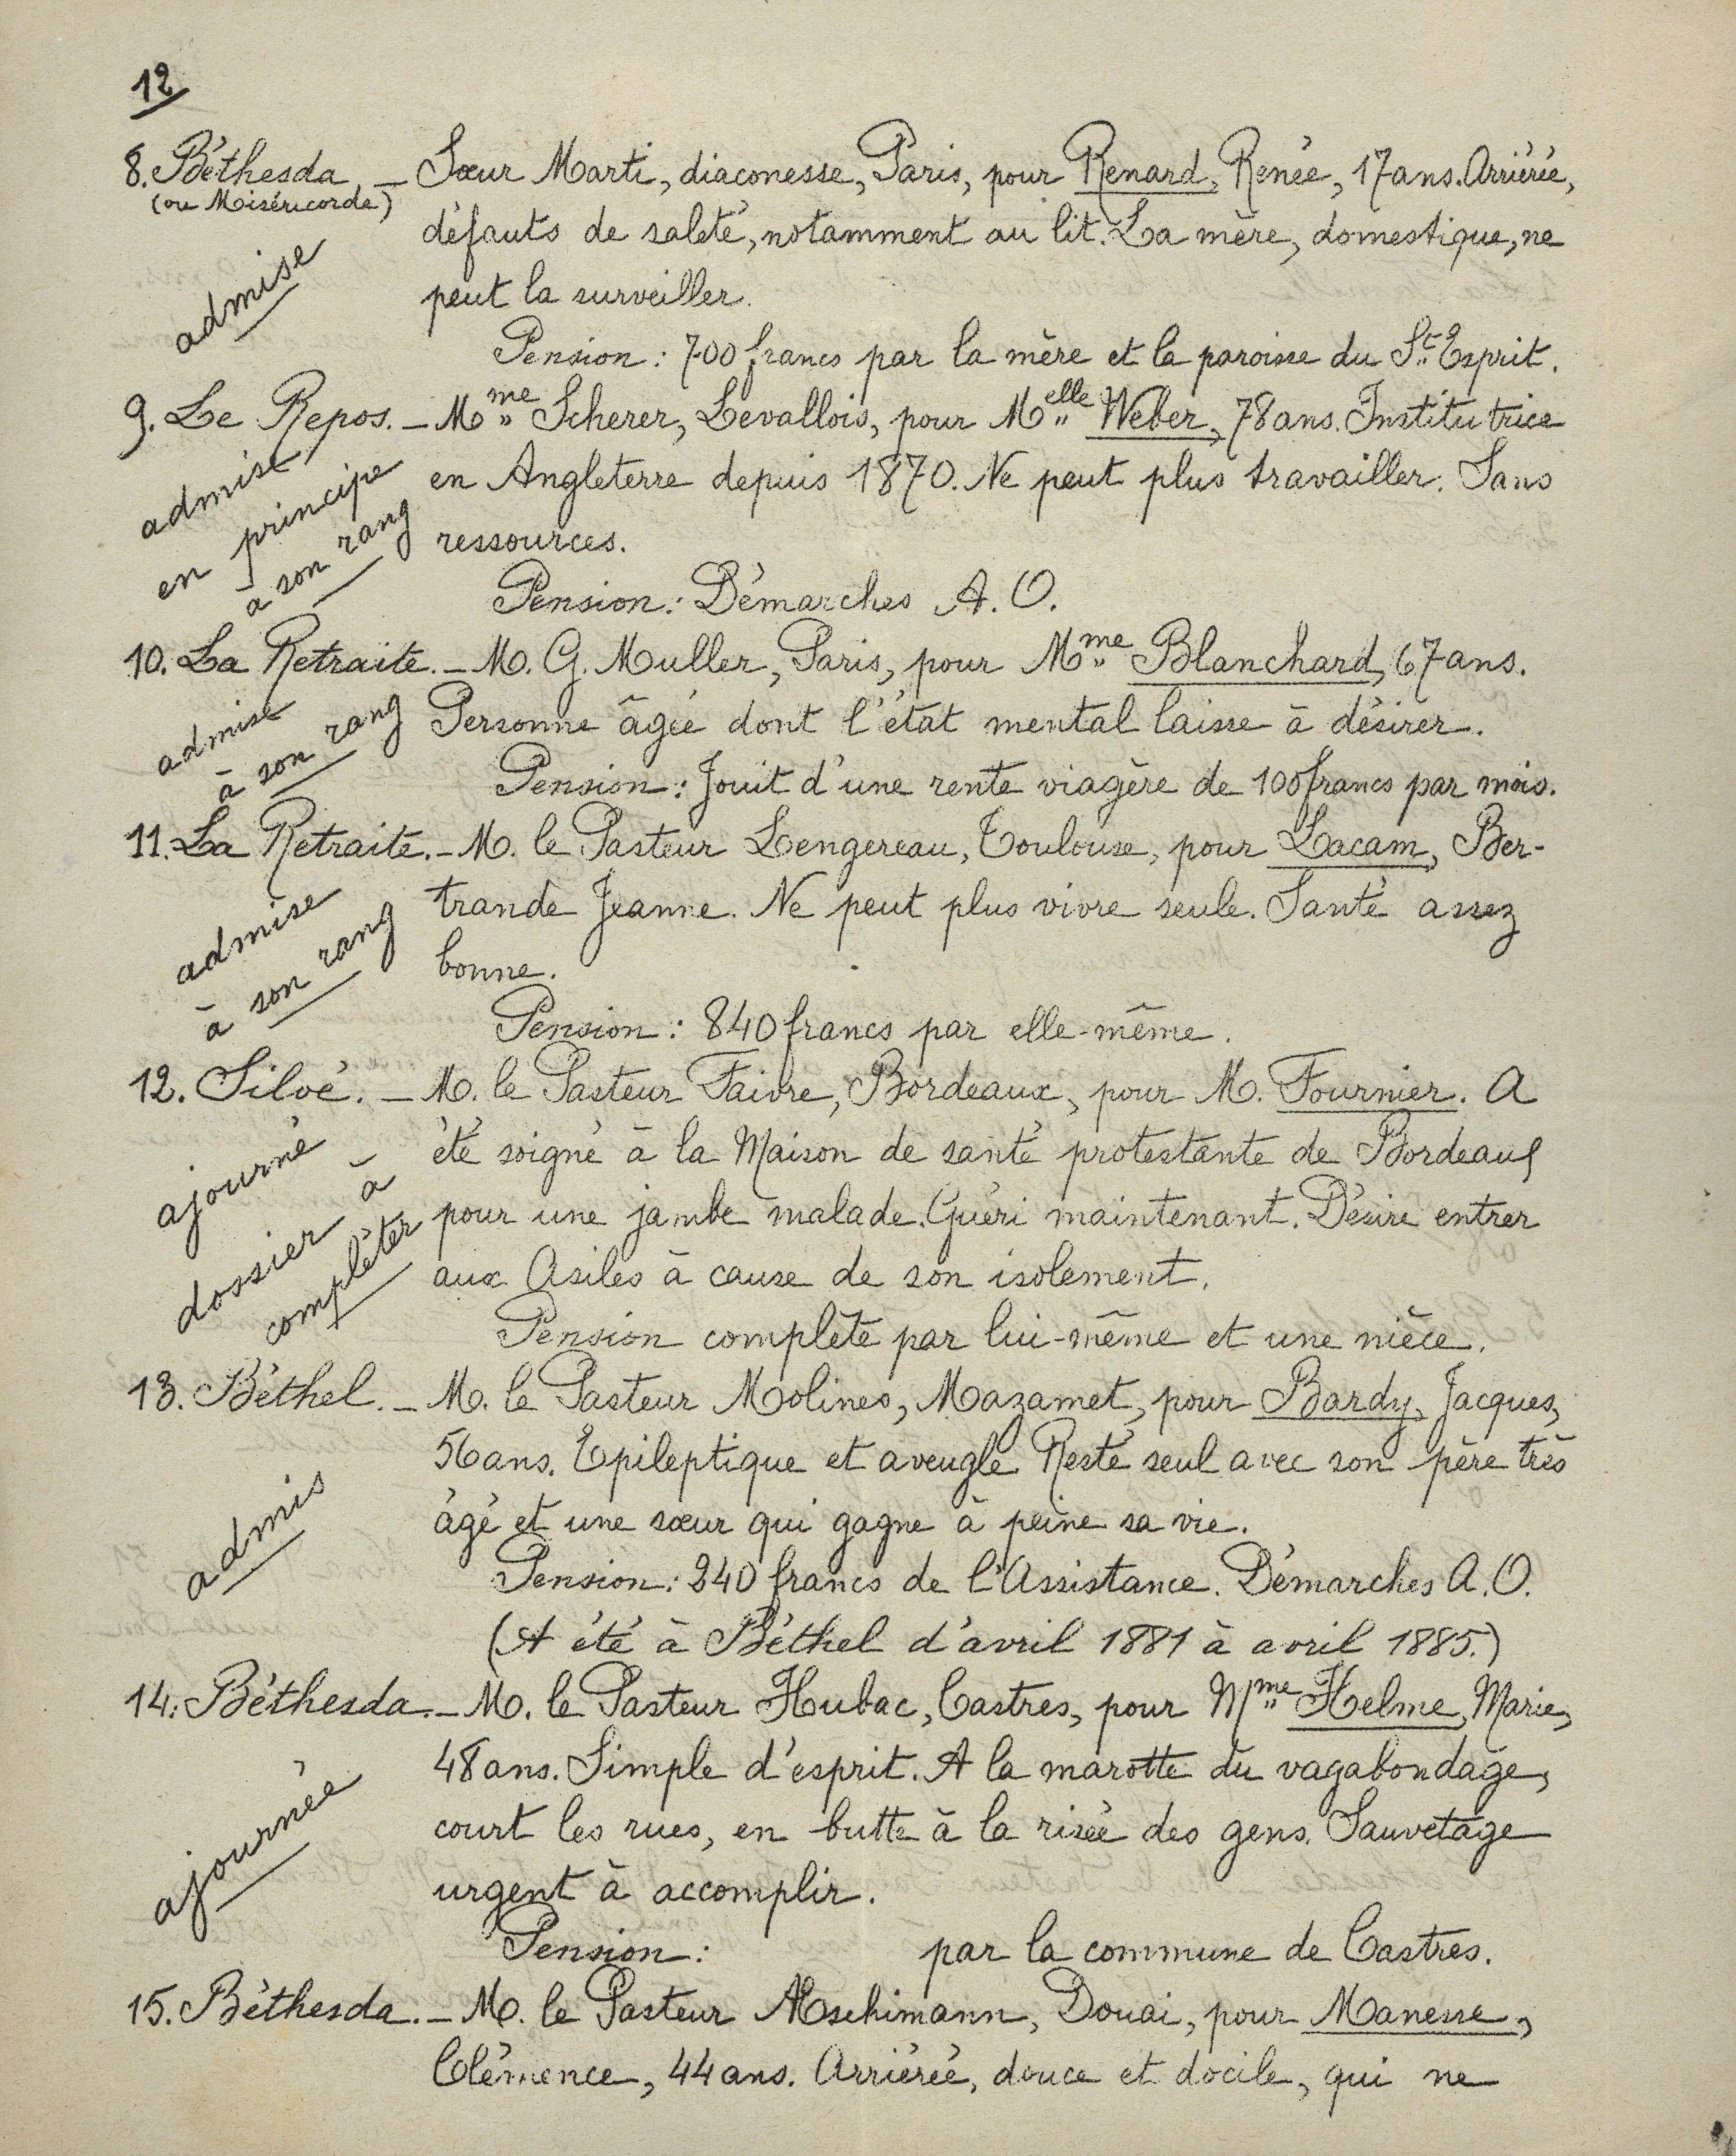 12
8. Béthesda — Sœur Marti, diaconesse, Paris, pour Renard, Renée, 17 ans. Arriérée,
(ou Miséricorde)
défauts de saleté, notamment au lit. La mère, domestique, ne
admise
peut la surveiller.
Pension : 700 francs par la mère et la paroisse du St Esprit.
9. Le Repos. — Mme Scherer, Levallois, pour Melle Weber, 78 ans. Institutrice
admise
en principe
à son rang
en Angleterre depuis 1870. Ne peut plus travailler. Sans
ressources.
Pension : Démarches A. O.
10. La Retraite. — M. G. Muller, Paris, pour Mme Blanchard, 67 ans.
admise
à son rang
Personne âgée dont l'état mental laisse à désirer.
Pension : Jouit d'une rente viagère de 100 francs par mois.
11. La Retraite. — M. le Pasteur Lengereau, Toulouse, pour Lacam, Ber-
admise
à son rang
trande Jeanne. Ne peut plus vivre seule. Santé assez
bonne.
Pension : 840 francs par elle-même.
12. Siloé. — M. le Pasteur Faivre, Bordeaux, pour M. Fournier. A
ajourné
dossier à
compléter
été soigné à la Maison de santé protestante de Bordeaux
pour une jambe malade. Guéri maintenant. Désire entrer
aux Asiles à cause de son isolement.
Pension complète par lui-même et une nièce.
13. Béthel. — M. le Pasteur Molines, Mazamet, pour Bardy, Jacques,
56 ans. Epileptique et aveugle. Resté seul avec son père très
admis
âgé et une sœur qui gagne à peine sa vie.
Pension : 240 francs de l'Assistance. Démarches A. O.
(A été à Béthel d'avril 1881 à avril 1885.)
14. Béthesda. — M. le Pasteur Hubac, Castres, pour Mme Helme, Marie,
48 ans. Simple d'esprit. A la marotte du vagabondage,
ajournée
court les rues, en butte à la risée des gens. Sauvetage
urgent à accomplir.
Pension : par la commune de Castres.
15. Béthesda. — M. le Pasteur Æschimann, Douai, pour Manesse,
Clémence, 44 ans. Arriérée, douce et docile, qui ne